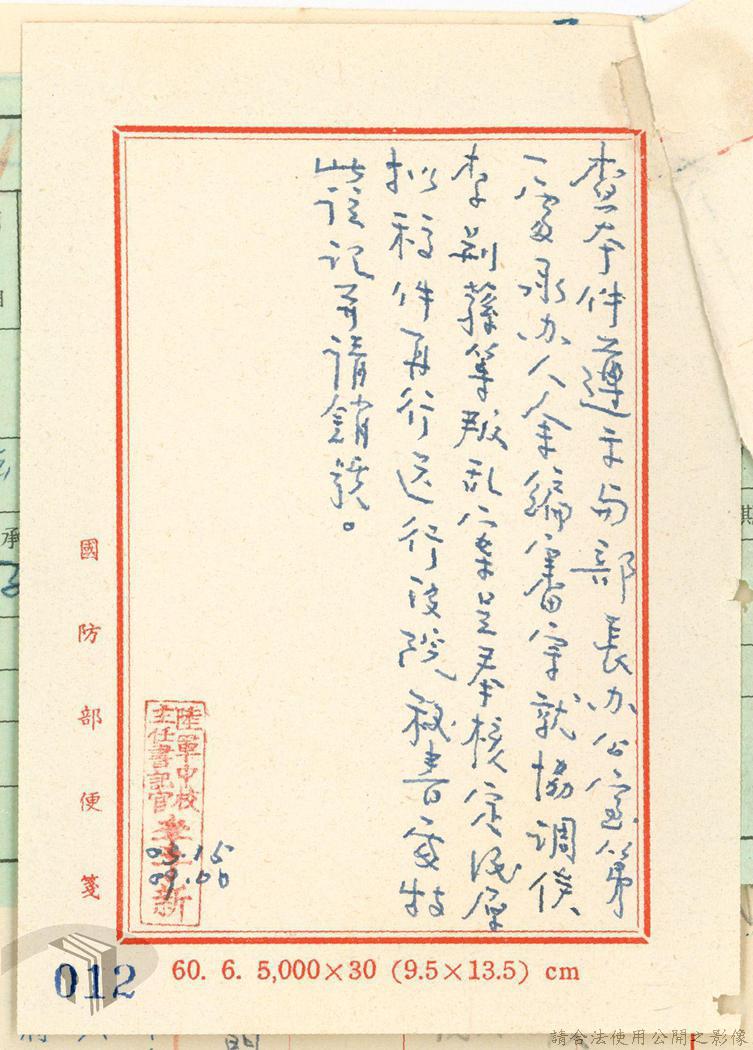 查本件遵示与部長办公室第
一處承办人余編審宗就協調俟
李荊蓀等叛乱案呈奉核定後原
拟稿件再行送行政院秘書處
此註記並請銷號。
國防部便箋
陸軍中校
主任書記官
新
03.15
09.00
012
60. 6. 5,000×30 (9.5×13.5) cm
請合法使用公開之影像